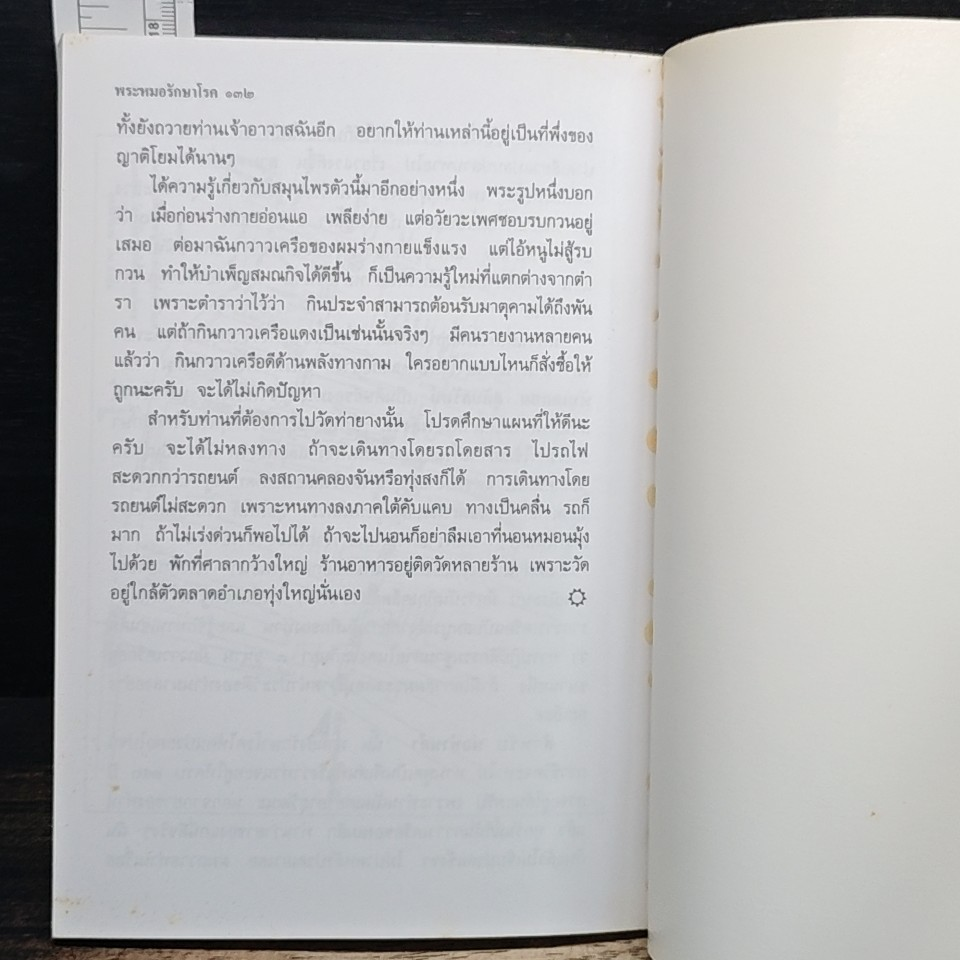 18
พระหมอรักษาโรค ๑๓๒
ทั้งยังถวายท่านเจ้าอาวาสฉันอีก อยากให้ท่านเหล่านี้อยู่เป็นที่พึ่งของ
ญาติโยมได้นานๆ
ได้ความรู้เกี่ยวกับสมุนไพรตัวนี้มาอีกอย่างหนึ่ง พระรูปหนึ่งบอก
ว่า เมื่อก่อนร่างกายอ่อนแอ เพลียง่าย แต่อวัยวะเพศชอบรบกวนอยู่
เสมอ ต่อมาฉันกวาวเครือของผมร่างกายแข็งแรง แต่ไอ้หนูไม่สู้รบ
กวน ทำให้บำเพ็ญสมณกิจได้ดีขึ้น ก็เป็นความรู้ใหม่ที่แตกต่างจากตำ
รา เพราะตำราว่าไว้ว่า กินประจำสามารถต้อนรับมาตุคามได้ถึงพัน
คน แต่ถ้ากินกวาวเครือแดงเป็นเช่นนั้นจริงๆ มีคนรายงานหลายคน
แล้วว่า กินกวาวเครือดีด้านพลังทางกาม ใครอยากแบบไหนก็สั่งซื้อให้
ถูกนะครับ จะได้ไม่เกิดปัญหา
สำหรับท่านที่ต้องการไปวัดท่ายางนั้น โปรดศึกษาแผนที่ให้ดีนะ
ครับ จะได้ไม่หลงทาง ถ้าจะเดินทางโดยรถโดยสาร ไปรถไฟ
สะดวกกว่ารถยนต์ ลงสถานคลองจันหรือทุ่งสงก็ได้ การเดินทางโดย
รถยนต์ไม่สะดวก เพราะหนทางลงภาคใต้คับแคบ ทางเป็นคลื่น รถก็
มาก ถ้าไม่เร่งด่วนก็พอไปได้ ถ้าจะไปนอนก็อย่าลืมเอาที่นอนหมอนมุ้ง
ไปด้วย พักที่ศาลากว้างใหญ่ ร้านอาหารอยู่ติดวัดหลายร้าน เพราะวัด
อยู่ใกล้ตัวตลาดอำเภอทุ่งใหญ่นั่นเอง